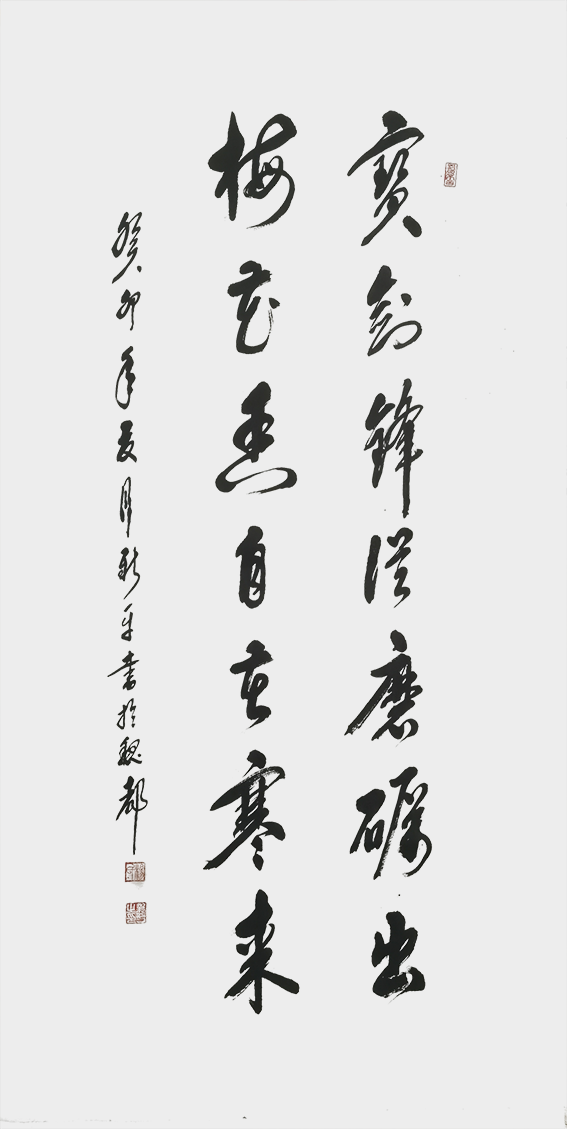 寶劍鋒從磨礪出
梅花香自苦寒來
癸卯年夏月新平書於魏都